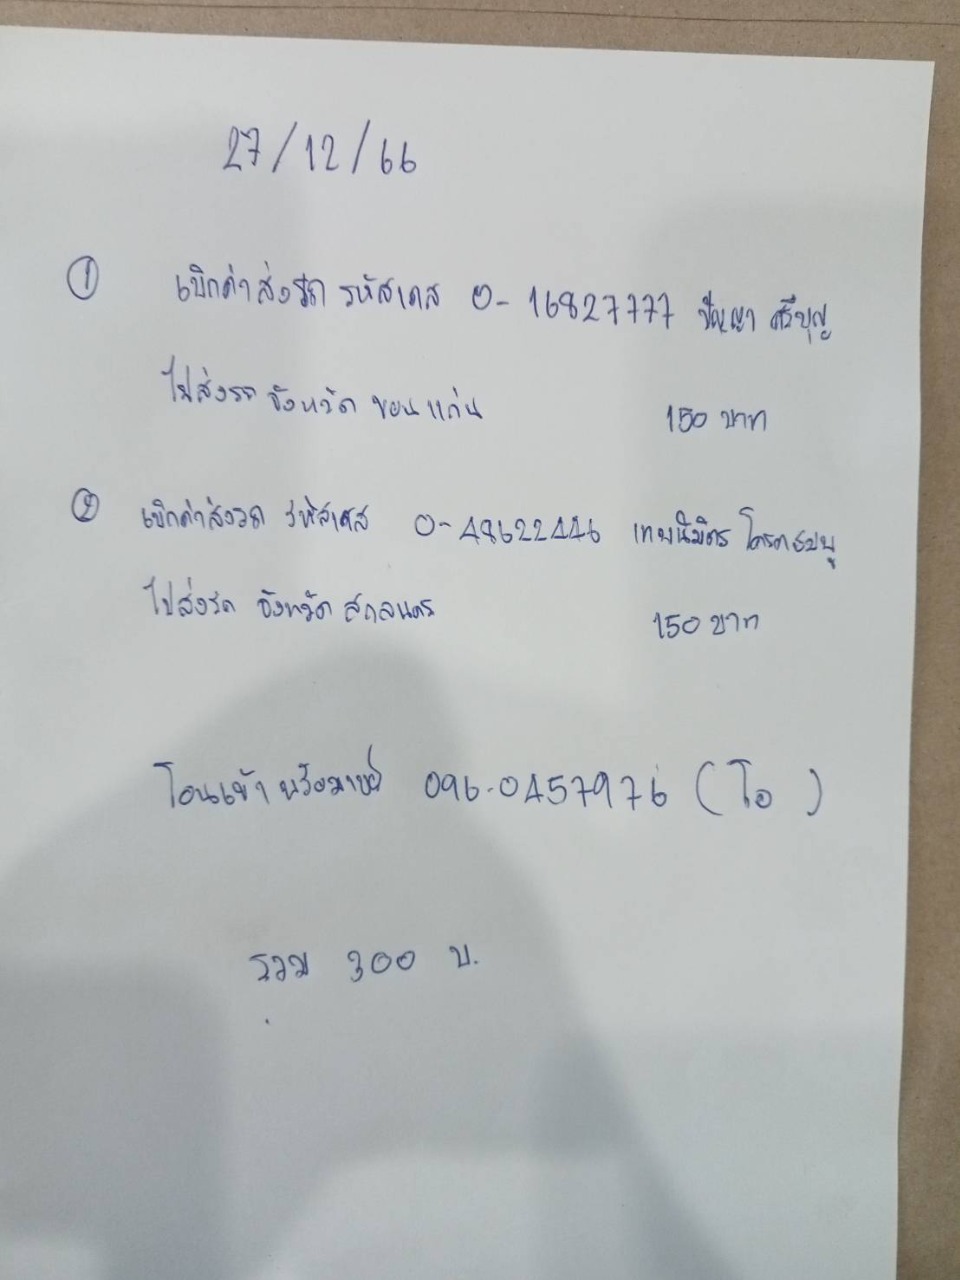 27/12/66
① เบิกค่าส่งรถ รหัสเคส 0-16827777 ปัญญา ศรีบุญ
ไปส่งรถ จังหวัด ขอนแก่น 150 บาท
② เบิกค่าส่งรถ รหัสเคส 0-48622446 เทพนิมิตร โคตรชมภู
ไปส่งรถ จังหวัด สกลนคร 150 บาท
โอนเข้า พร้อมเพย์ 096-0457976 (โอ)
รวม 300 บ.